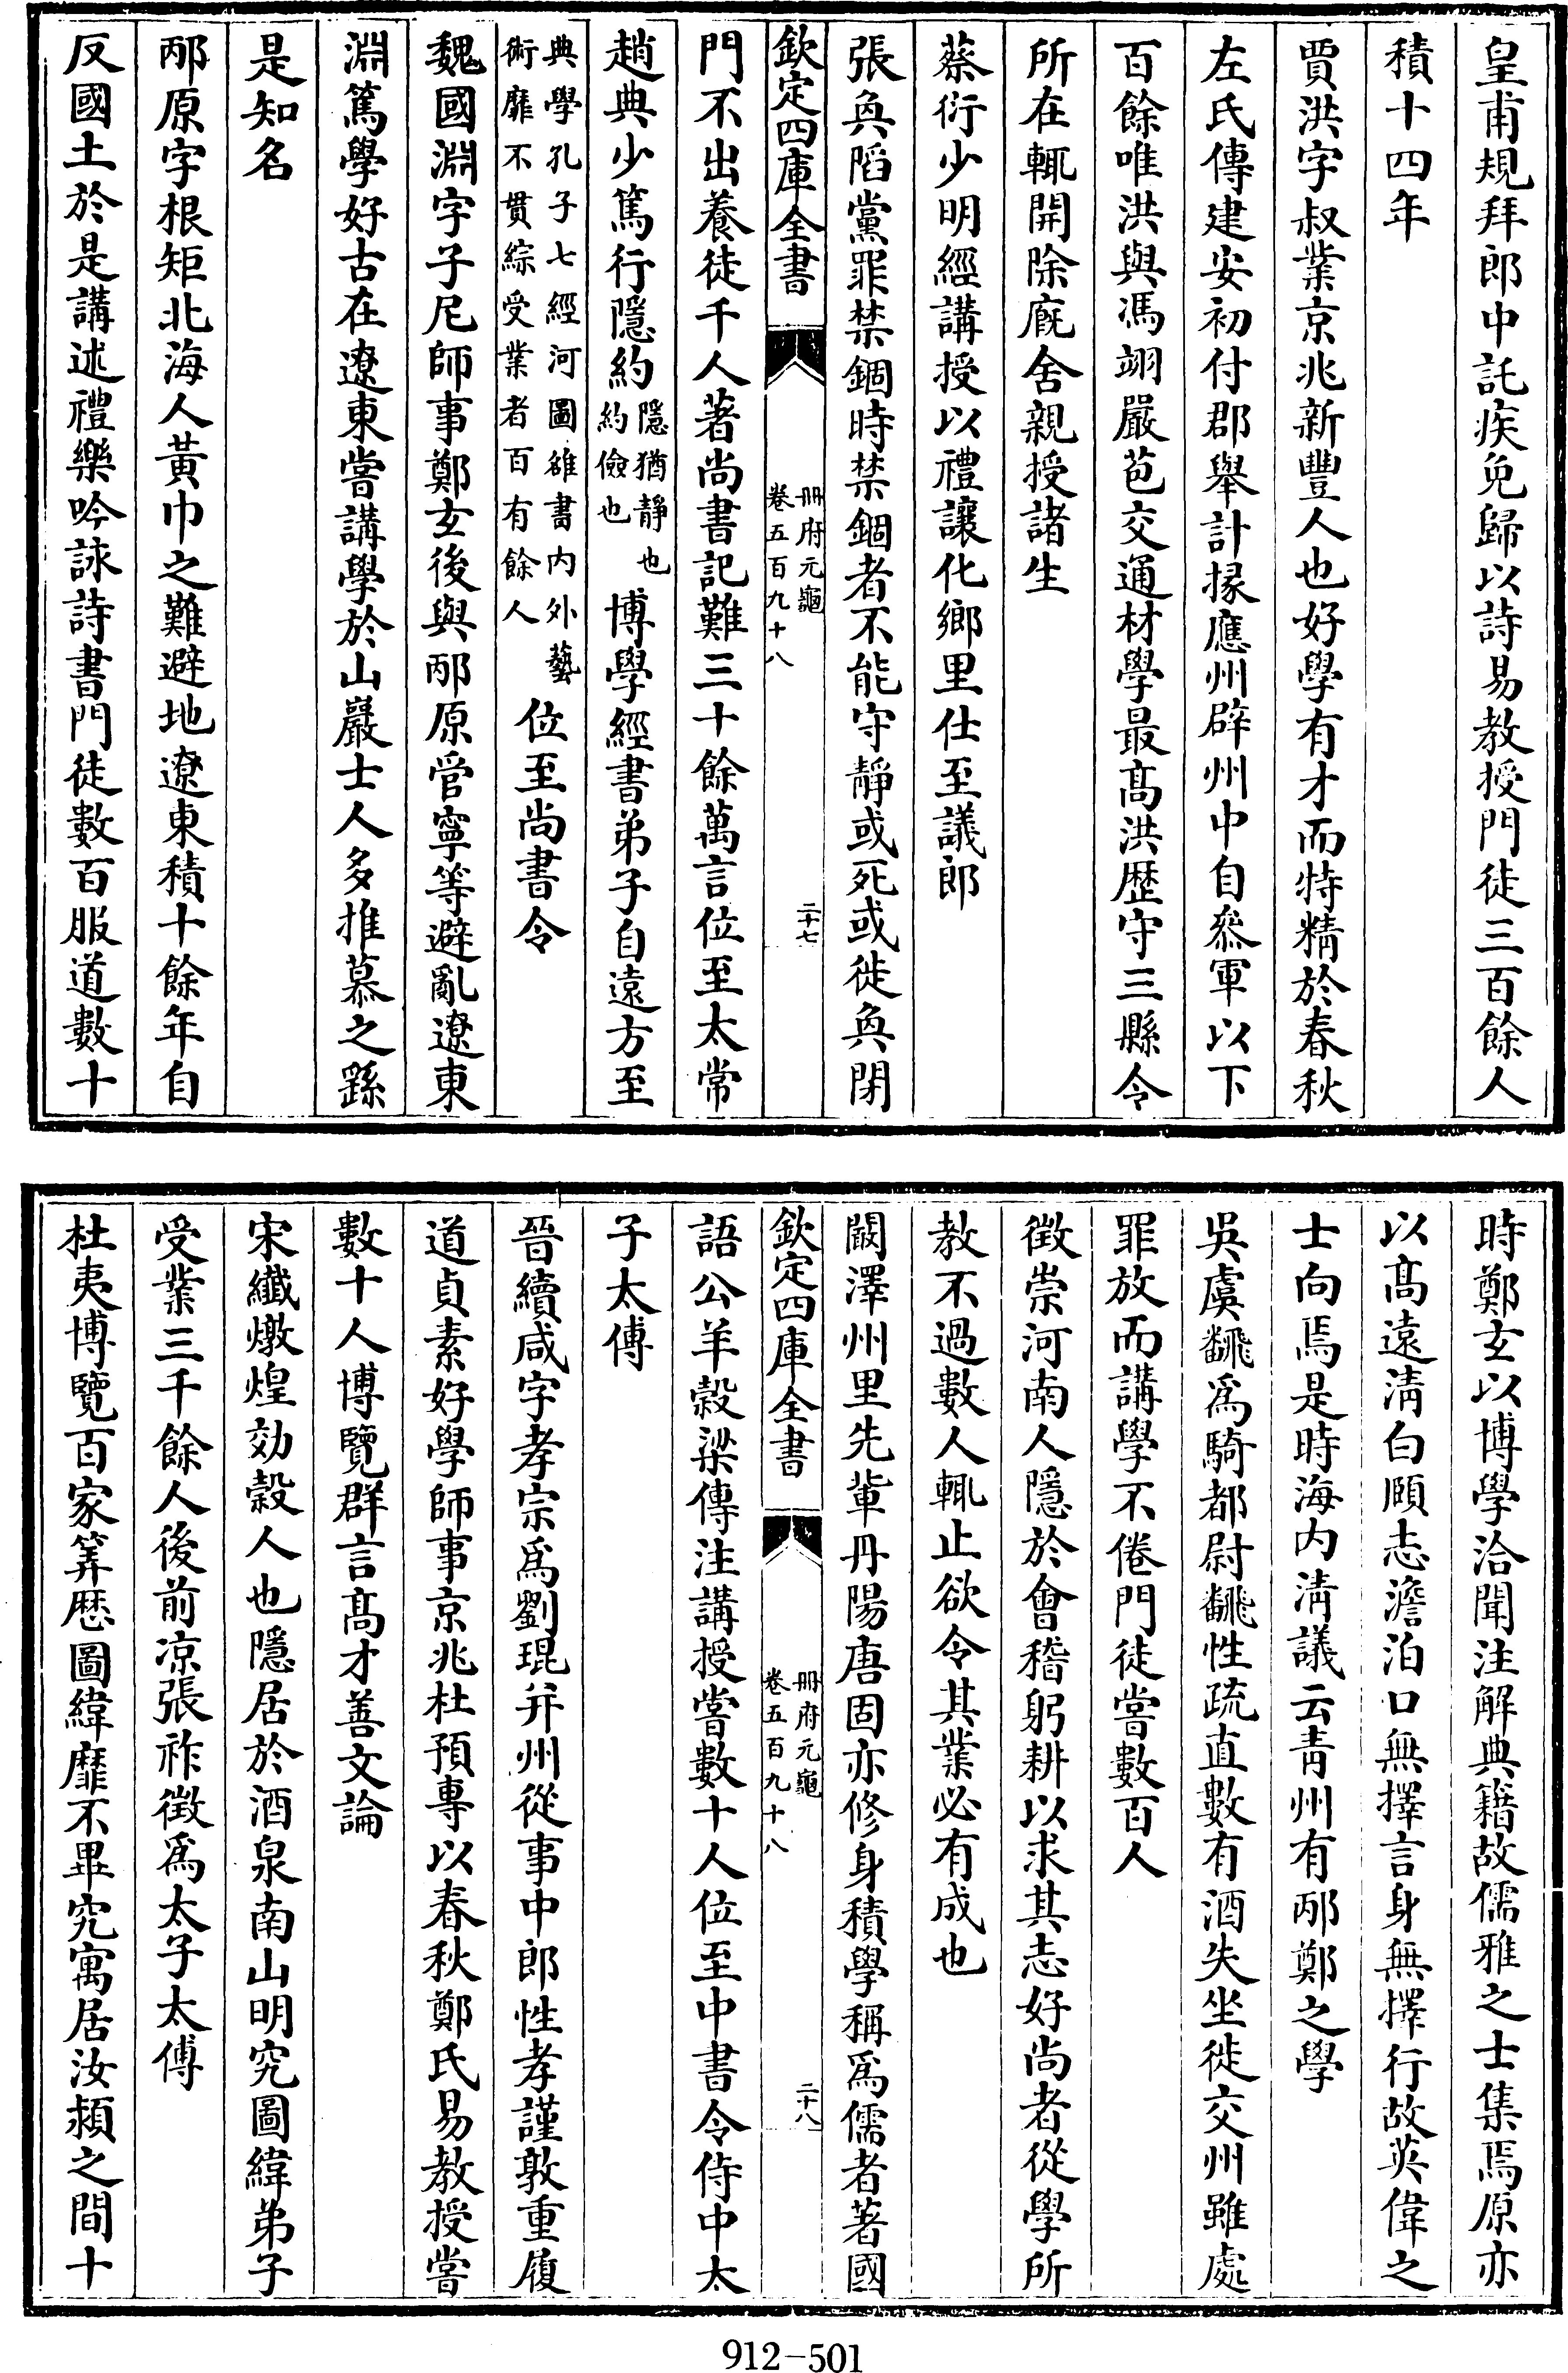 皇甫規拜郎中託疾免歸以詩易教授門徒三百餘人
積十四年
賈洪字叔業京兆新豐人也好學有才而特精於春秋
左氏傳建安初付郡舉計掾應州辟州中自叅軍以下
百餘唯洪與馮翊嚴苞交通材學最髙洪歴守三縣令
所在輒開除廐舍親授諸生
蔡衍少明經講授以禮讓化鄉里仕至議郎
張奐陷黨罪禁錮時禁錮者不能守靜或死或徙奐閉
欽定四庫全書
冊府元龜
卷五百九十八
二十七
門不出養徒千人著尚書記難三十餘萬言位至太常
趙典少篤行隱約隱猶靜也約儉也博學經書弟子自遠方至
典學孔子七經河圖雒書内外藝術靡不貫綜受業者百有餘人位至尚書令
魏國淵字子尼師事鄭玄後與邴原管寧等避亂遼東
淵篤學好古在遼東嘗講學於山巖士人多推慕之繇
是知名
邴原字根矩北海人黃巾之難避地遼東積十餘年自
反國土於是講述禮樂吟詠詩書門徒數百服道數十
時鄭玄以博學洽聞注解典籍故儒雅之士集焉原亦
以髙遠清白頤志澹泊口無擇言身無擇行故英偉之
士向焉是時海内清議云青州有邴鄭之學
吳虞翻為騎都尉翻性疏直數有酒失坐徙交州雖處
罪放而講學不倦門徒嘗數百人
徵崇河南人隱於會稽躬耕以求其志好尚者從學所
教不過數人輒止欲令其業必有成也
闞澤州里先輩丹陽唐固亦修身積學稱為儒者著國
欽定四庫全書
冊府元龜
卷五百九十八
二十八
語公羊榖梁傳注講授嘗數十人位至中書令侍中太
子太傅
晉續咸字孝宗為劉琨并州從事中郎性孝謹敦重履
道貞素好學師事京兆杜預專以春秋鄭氏易教授嘗
數十人博覽群言髙才善文論
宋纖燉煌効榖人也隱居於酒泉南山明究圖緯弟子
受業三千餘人後前凉張祚徵為太子太傅
杜夷博覽百家筭厯圖緯靡不畢究寓居汝潁之間十
912-501